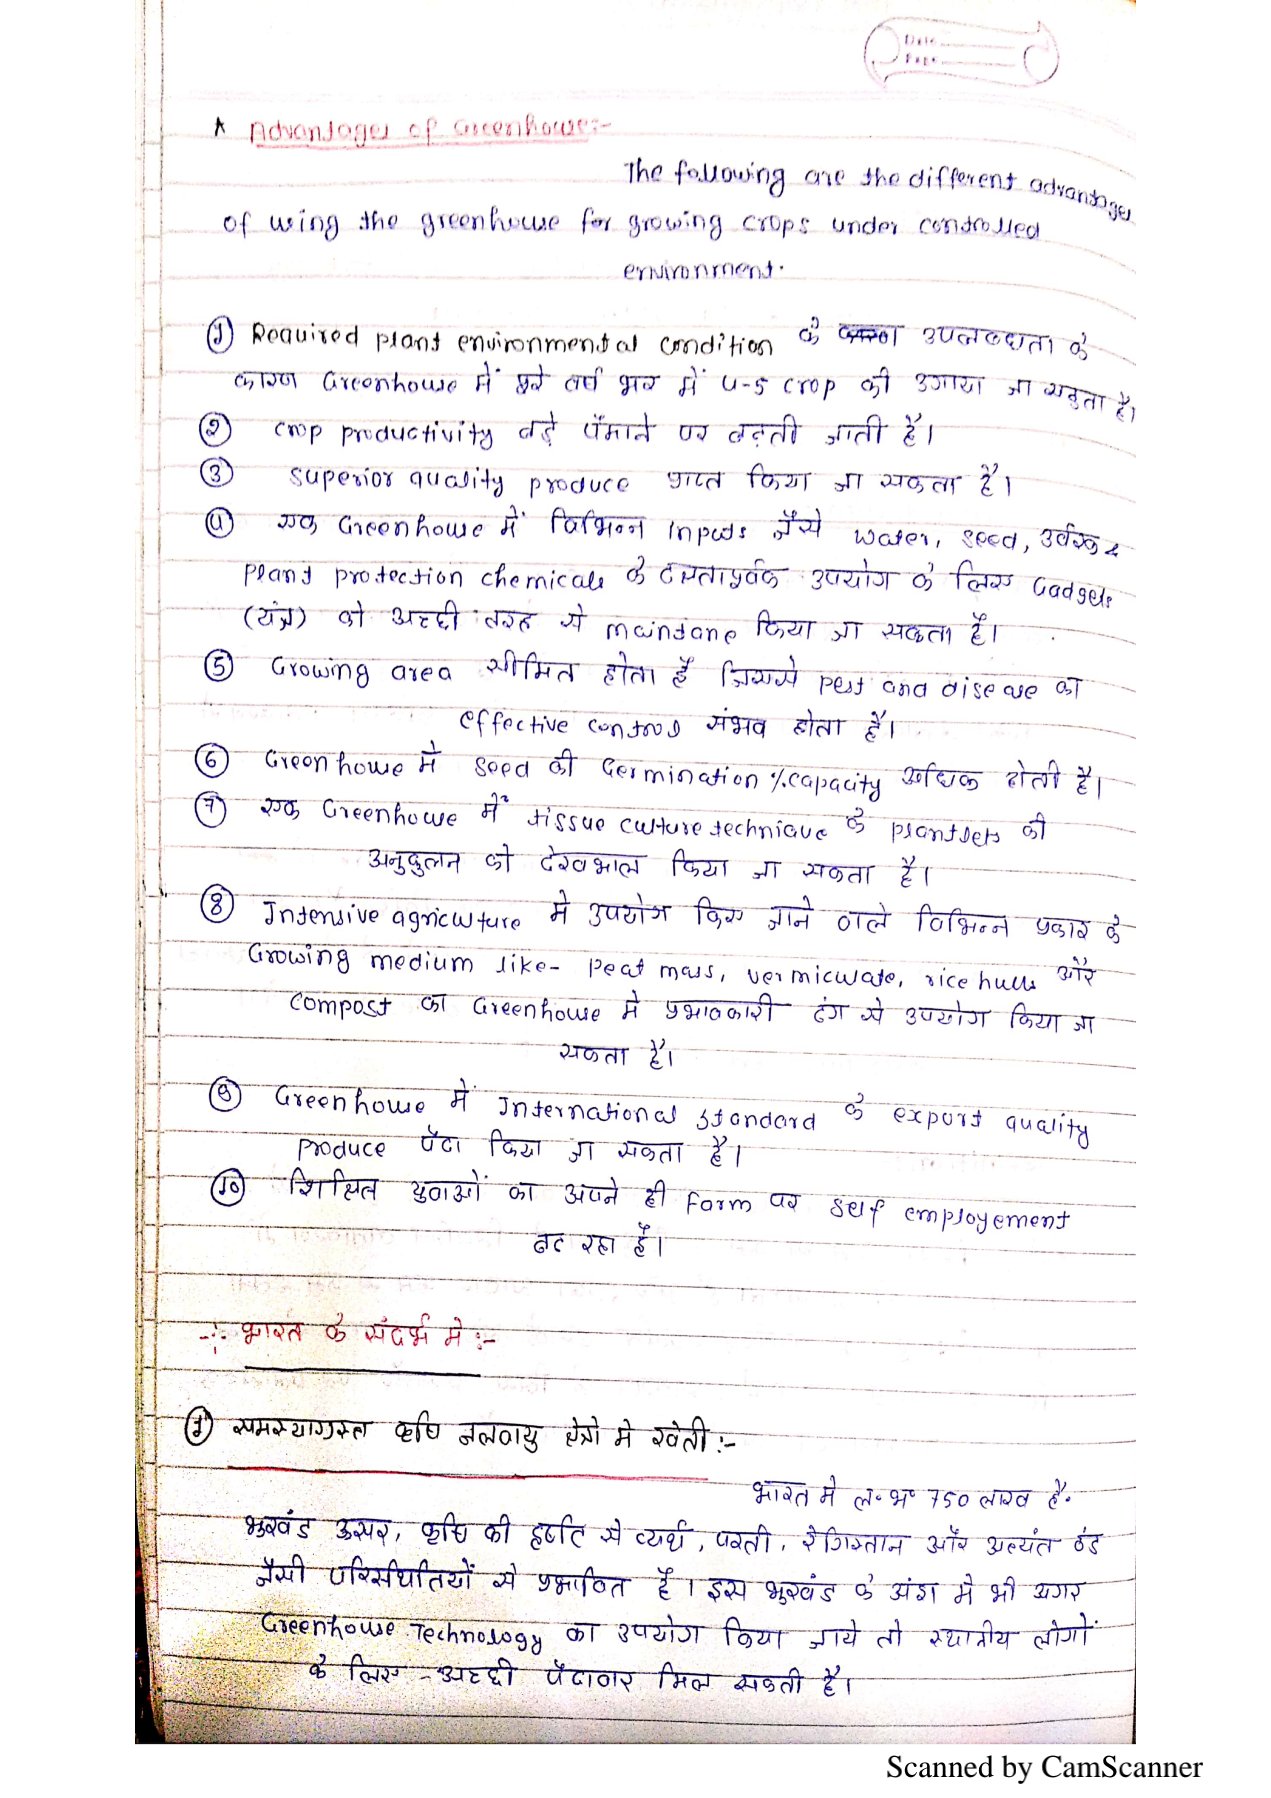 Date
Page
* Advantages of Greenhouse:-
The following are the different advantages
of using the greenhouse for growing crops under controlled
environment.
① Required plant environmental condition के उपलब्धता के
कारण Greenhouse में पुरे वर्ष भर में 4-5 crop की उगाया जा सकता है।
② crop productivity बड़े पैमाने पर बढ़ती जाती है।
③ superior quality produce प्राप्त किया जा सकता है।
④ एक Greenhouse में विभिन्न Inputs जैसे water, seed, उर्वरक र
plant protection chemicals के दक्षतापूर्वक उपयोग के लिए Gadgets
(यंत्र) को अच्छी तरह से maintane किया जा सकता है।
⑤ Growing area सीमित होता है जिससे pest and disease का
effective control संभव होता है।
⑥ Greenhouse मे seed की Germination % capacity अधिक होती है।
⑦ एक Greenhouse में tissue culture technique के plantlets की
अनुकुलन को देखभाल किया जा सकता है।
⑧ Intensive agriculture मे उपयोग किए जाने वाले विभिन्न प्रकार के
Growing medium like- peat mass, vermiculate, rice hulls और
compost का Greenhouse मे प्रभावकारी ढंग से उपयोग किया जा
सकता है।
⑨ Greenhouse में International standard के export quality
produce पैदा किया जा सकता है।
⑩ शिक्षित युवाओं का अपने ही Farm पर self employement
बढ रहा है।
-:- भारत के संदर्भ मे :-
① समस्याग्रस्त कृषि जलवायु क्षेत्रो मे खेती :-
भारत मे ल॰ भ॰ 750 लाख है॰
भुखंड ऊसर, कृषि की दृष्टि से व्यर्थ, परती, रेगिस्तान और अत्यंत ठंड
जैसी परिस्थितियों से प्रभावित हैं। इस भुखंड के अंश मे भी अगर
Greenhouse Technology का उपयोग किया जाये तो स्थानीय लोगों
के लिए - अच्छी पैदावार मिल सकती है।
Scanned by CamScanner